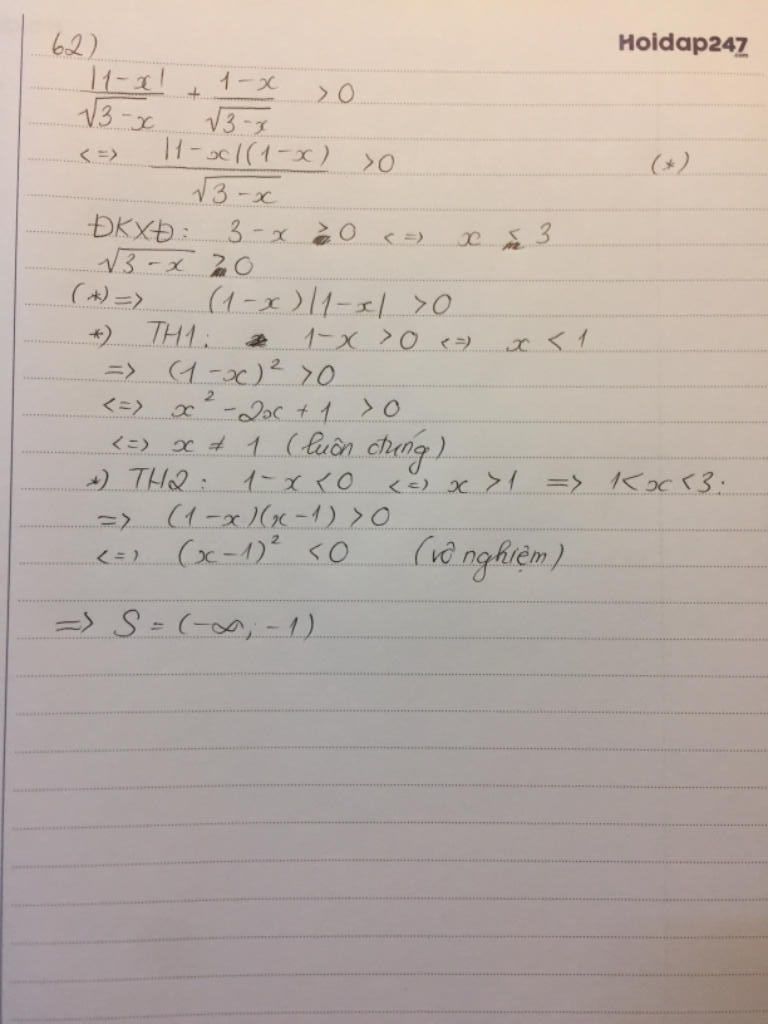 62)
Hoidap247.com
|1-x|/√3-x + 1-x/√3-x > 0
<=> |1-x|(1-x)/√3-x > 0 (*)
ĐKXĐ: 3-x ≥ 0 <=> x ≤ 3
√3-x ≥ 0
(*) => (1-x)|1-x| > 0
*) TH1: 1-x > 0 <=> x < 1
=> (1-x)² > 0
<=> x² - 2x + 1 > 0
<=> x ≠ 1 (luôn đúng)
*) TH2: 1-x < 0 <=> x > 1 => 1 < x < 3:
=> (1-x)(x-1) > 0
<=> (x-1)² < 0 (vô nghiệm)
=> S = (-∞; -1)